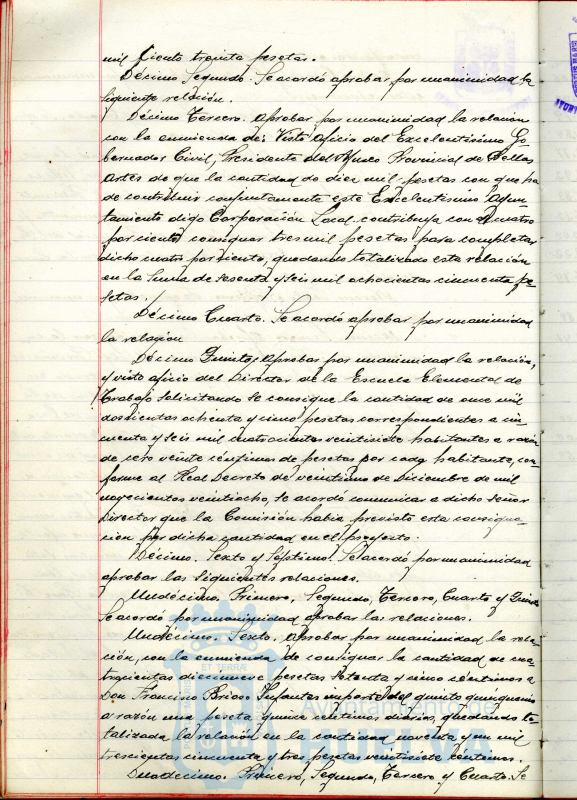 mil ciento treinta pesetas.
Décimo Segundo. Se acordó aprobar por unanimidad la
siguiente relación.
Décimo Tercero. Aprobar por unanimidad la relación
con la enmienda de: Visto oficio del Excelentísimo Go-
bernador Civil, Presidente del Museo Provincial de Bellas
Artes de que la cantidad de diez mil pesetas con que ha
de contribuir conjuntamente este Excelentísimo Ayun-
tamiento digo Corporación Local contribuya con el cuatro
por ciento consignar tres mil pesetas para completar
dicho cuatro por ciento, quedando totalizada esta relación
en la suma de sesenta y seis mil ochocientas cincuenta pe-
setas.
Décimo Cuarto. Se acordó aprobar por unanimidad
la relación
Décimo Quinto. Aprobar por unanimidad la relación,
y visto oficio del Director de la Escuela Elemental de
Trabajo solicitando se consigne la cantidad de once mil
doscientas ochenta y cinco pesetas correspondientes a cin
cuenta y seis mil cuatrocientos veintisiete habitantes a razón
de cero veinte céntimos de pesetas por cada habitante, con-
forme al Real Decreto de veintiuno de Diciembre de mil
novecientos veintiocho, se acordó comunicar a dicho señor
Director que la Comisión había previsto esta consigna-
cion por dicha cantidad en el proyecto.
Décimo. Sexto y Séptimo. Se acordó por unanimidad
aprobar las siguientes relaciones.
Undécimo. Primero, Segundo, Tercero, Cuarto y Quinto
Se acordó por unanimidad aprobar las relaciones.
Undécimo. Sexto. Aprobar por unanimidad la rela-
ción, con la enmienda de consignar la cantidad de cua-
trocientas diecinueve pesetas setenta y cinco céntimos a
Don Francisco Brioso Infantes importe del quinto quinquenio
a razón una peseta quince céntimos diarios, quedando to-
talizada la relación en la cantidad noventa y un mil
trescientas cincuenta y tres pesetas veintisiete céntimos.
Duodécimo. Primero, Segundo, Tercero y Cuarto. Se
Ayuntamiento de
HUELVA